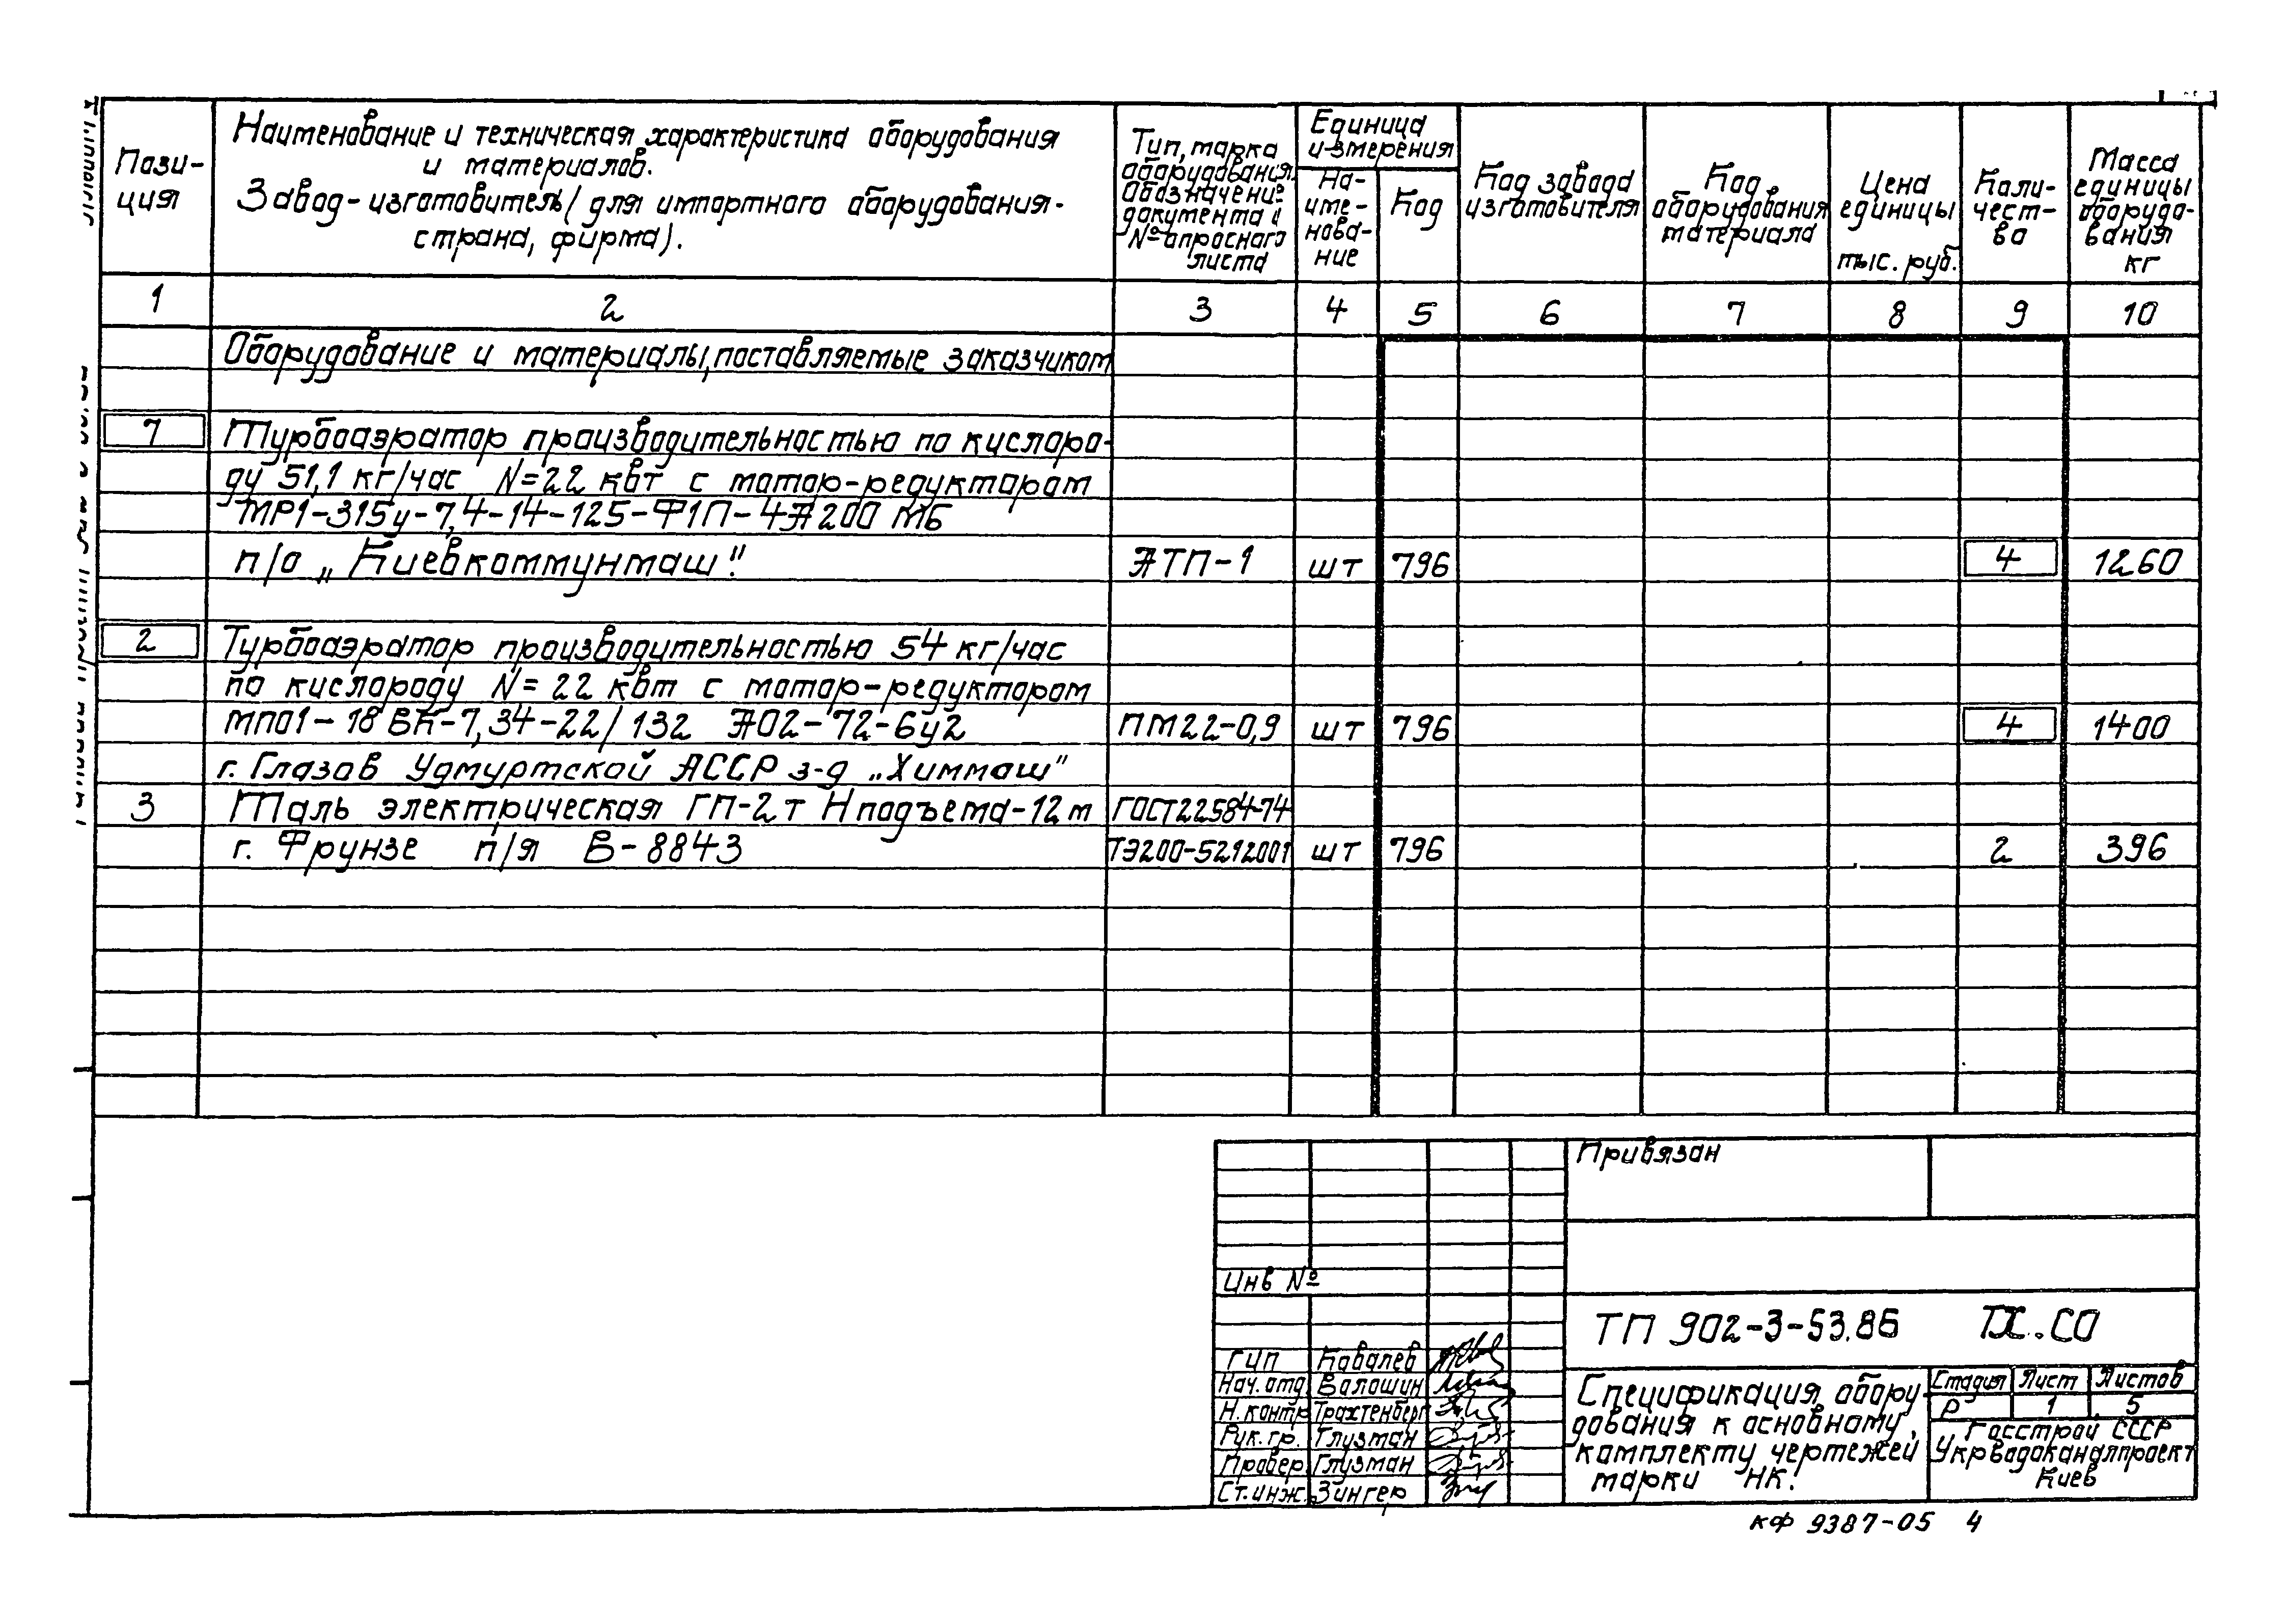 Пози-
ция
Наименование и техническая характеристика оборудования
и материалов.
Завод-изготовитель (для импортного оборудования-
страна, фирма).
Тип, марка
оборудования.
Обозначение
документа и
№ опросного
листа
Единица
измерения
На-
име-
нова-
ние
Код
Код завода
изготовителя
Код
оборудования
материала
Цена
единицы
тыс. руб.
Коли-
чест-
во
Масса
единицы
оборудо-
вания
кг
1 2 3 4 5 6 7 8 9 10
Оборудование и материалы, поставляемые заказчиком
7 Турбоаэратор производительностью по кислоро-
ду 51,1 кг/час N=22 квт с мотор-редуктором
МР1-315у-7,4-14-125-Ф1П-4А200 М6
п/о „Киевкоммунмаш". АТП-1 шт 796 4 1260
2 Турбоаэратор производительностью 54 кг/час
по кислороду N=22 квт с мотор-редуктором
МПО1-18 ВК-7,34-22/132 АО2-72-6у2 ПМ22-0,9 шт 796 4 1400
г. Глазов Удмуртской АССР з-д „Химмаш"
3 Таль электрическая ГП-2т Нподъема-12м ГОСТ22584-74
г. Фрунзе п/я В-8843 ТЭ200-5212001 шт 796 2 396
Привязан
Инв №
ТП 902-3-53.86 ТХ.СО
ГИП Ковалев
Нач. отд. Волошин
Н. контр Трахтенберг
Рук. гр. Глузман
Провер. Глузман
Ст. инж. Зингер
Спецификация обору-
дования к основному
комплекту чертежей
марки НК.
Стадия Лист Листов
Р 1 5
Госстрой СССР
Укрводоканалпроект
Киев
КФ 9387-05 4